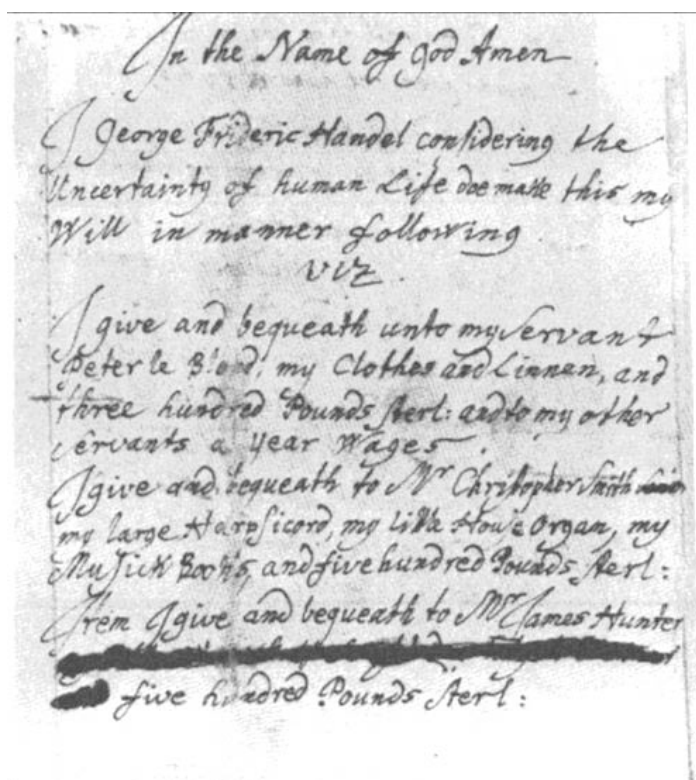 In the Name of god Amen
I George Frideric Handel considering the
Uncertainty of human Life doe make this my
Will in manner following
viz.
I give and bequeath unto my Servant
Peter le Blond, my Clothes and Linnen, and
three hundred Pounds sterl: and to my other
servants a year Wages.
I give and bequeath to Mr Christopher Smith
my large Harpsicord, my little House Organ, my
Musick Books, and five hundred Pounds sterl:
Item I give and bequeath to Mr James Hunter
five hundred Pounds sterl: